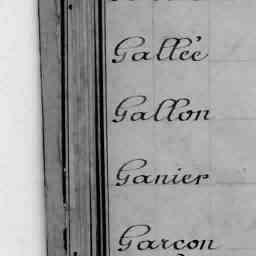 Gallée
Gallon
Ganier
Garçon